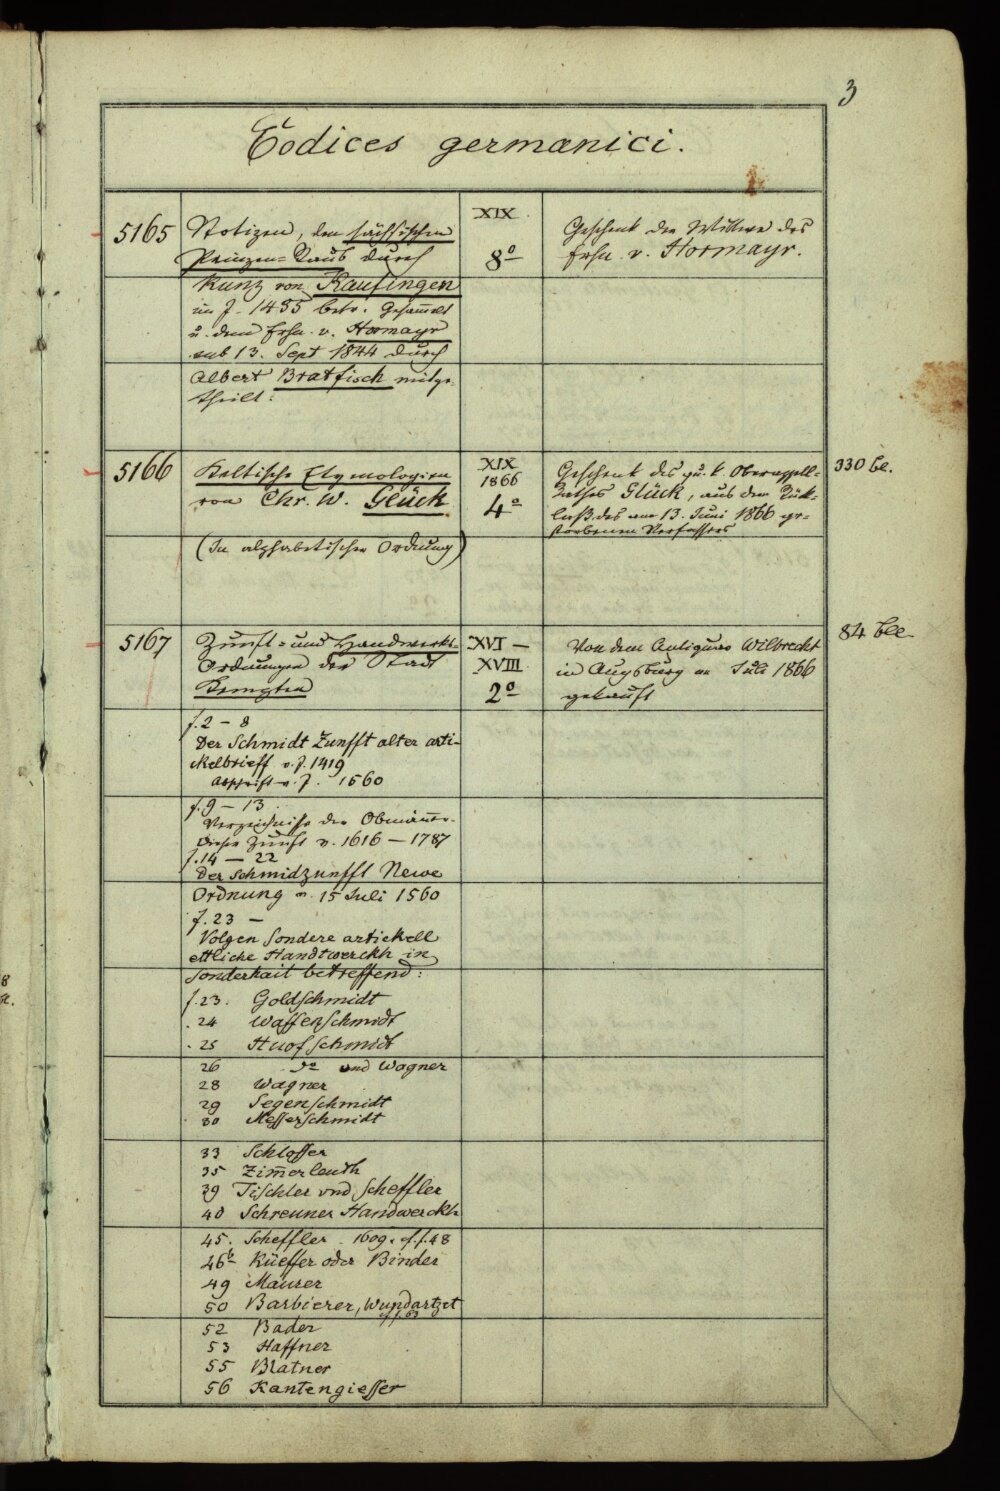 3
Codices germanici.
5165
Notizen, den sächsischen
Prinzen-Raub durch
Kunz von Kaufingen
im J. 1455 betr. Gesam̅elt
u. dem Frhn. v. Hormayr
sub 13. Sept 1844 durch
Albert Bratfisch mitge-
theilt.
XIX
8º
Geschenk der Wittwe des
Frhn. v. Hormayr.
5166
Keltische Etymologien
von Chr. W. Glück
(In alphabetischer Ordnung)
XIX
1866
4º
Geschenk des qu. k. Oberappell-
Rathes Glück, aus dem Rück-
laß des am 13. Juni 1866 ge-
storbenen Verfassers
330 bl.
5167
Zunft- und Handwerks-
Ordnungen der Stadt
Kempten
XVI —
XVIII
2º
Von dem Antiquar Wilbrecht
in Augsburg im Juli 1866
gekauft
84 bll
f. 2 – 8
Der Schmidt Zunfft alter arti-
ckelbrieff v. J. 1419
Abschrift v. J. 1560
f. 9 – 13
Verzeichniß der Obmänner
dieser Zunft v. 1616 – 1787
f. 14 – 22
Der Schmidzunfft Newe
Ordnung v. 15 Juli 1560
f. 23 –
Volgen Sondere artickell
ettliche Handtwerckh in
Sonderhait betreffend:
f. 23. Goldschmidt
. 24 Waffenschmidt
. 25 Huofschmidt
26 dº und Wagner
28 Wagner
29 Segenschmidt
30 Messerschmidt
33 Schlosser
35 Zim̅erleuth
39 Tischler vnd Scheffler
40 Schreuner Handwerckh
45. Scheffler 1609. cf. f. 48
46b Küeffer oder Binder
49 Maurer
50 Barbierer, Wundartzet
cf. f. 63
52 Bader
53 Haffner
55 Blatner
56 Kantengiesser
8